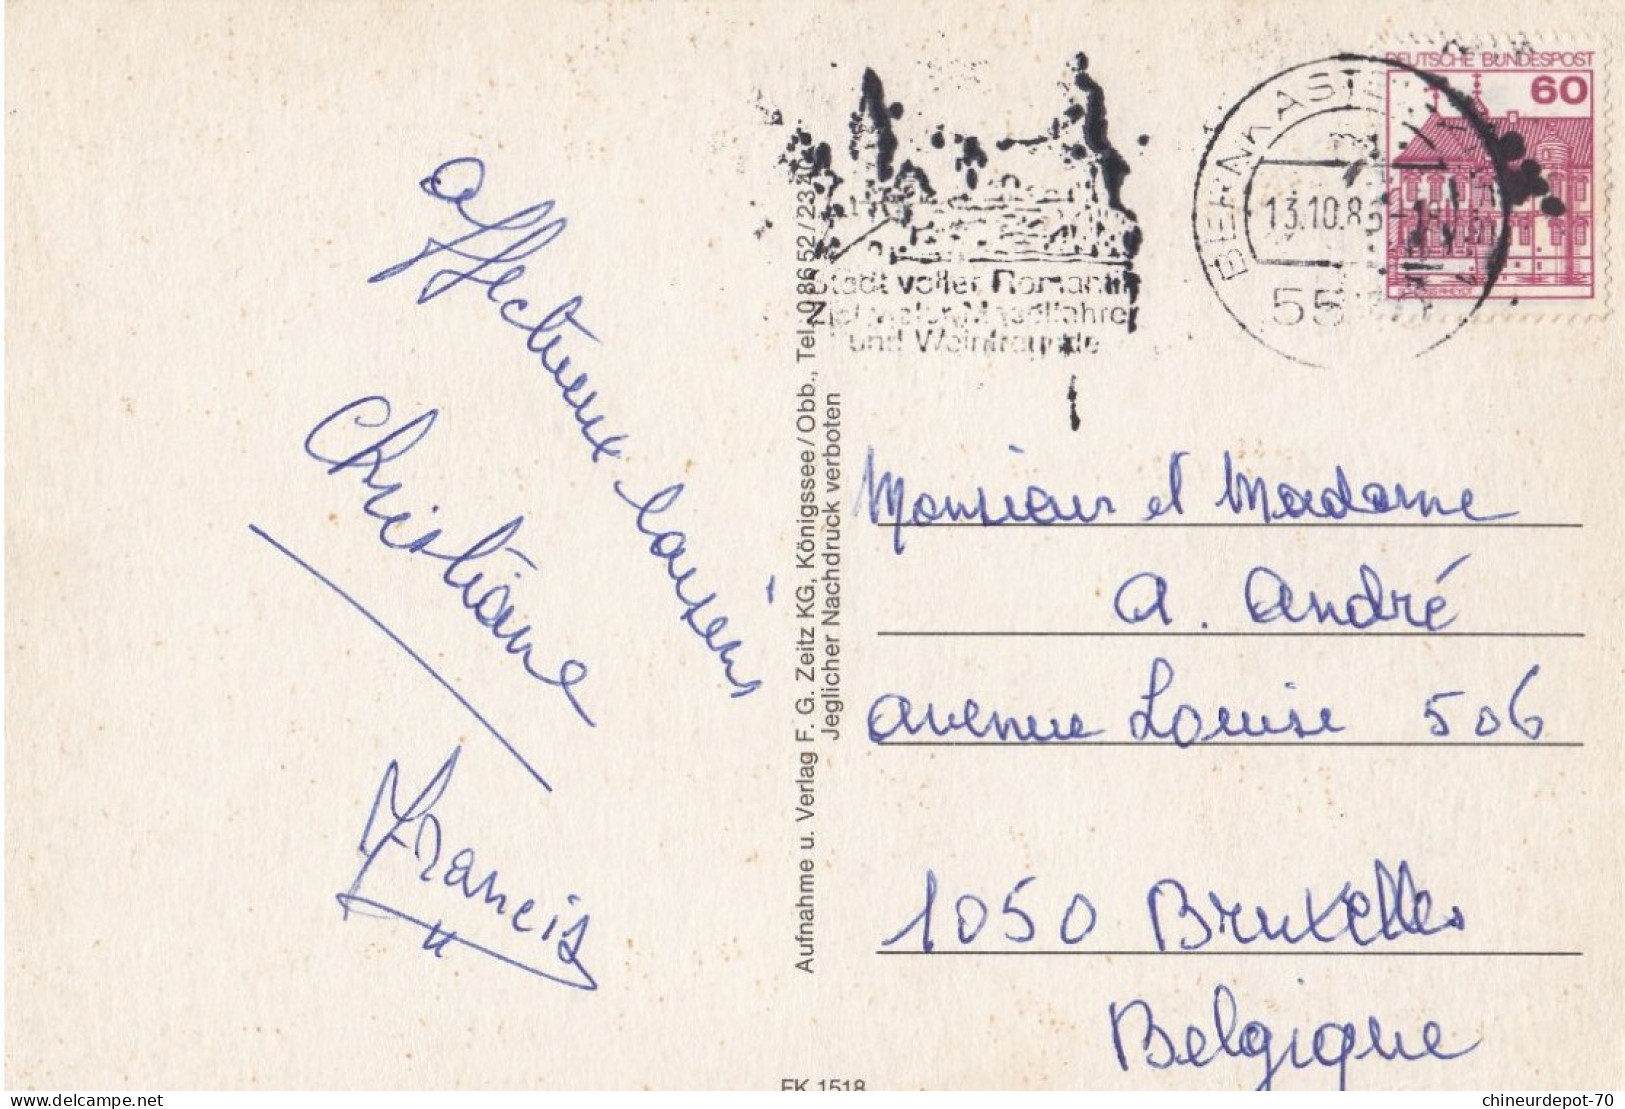 affectueux baisers
Christiane
Francis
Aufnahme u. Verlag F. G. Zeitz KG, Königssee/Obb., Tel. 0 86 52 / 23 40
Jeglicher Nachdruck verboten
FK 1518
Stadt voller Romantik
Ziel vieler Moselfahrer
und Weinfreunde
BERNKASTEL
13.10.86-18
55
DEUTSCHE BUNDESPOST
60
Monsieur et Madame
A. André
avenue Louise 506
1050 Bruxelles
Belgique
delcampe.net
chineurdepot-70